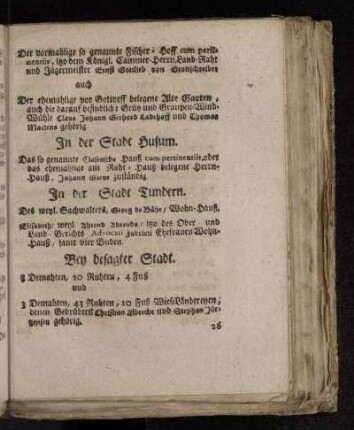 Der vormahlige so genannte Fischer-Hoff cum perti-
nentiis, itzo dem Königl. Cammer-Herrn, Land-Raht
und Jägermeister Ernst Gottlieb von
auch
Der ehemahlige vor Gottorff belegene Alte Garten,
auch die darauf befindliche Grütz und Graupen-Wind-
Mühle Claus Johann Gerhard Ladehoff und Thomas
Martens gehörig
In der Stadt Husum.
Das so genannte Hauß cum pertinentiis, oder
das ehemahlige am Raht-Hauß belegene Herrn-
Hauß, Johann zuständig
In der Stadt Tundern.
Des weyl. Sachwalters, Georg de Bähr, Wohn-Hauß.
Elisabeth, weyl. Ahrend Ahrends, itzo des Ober und
Land-Gerichts Advocati Ehefrauen Wohn-
Hauß, samt vier Buden.
Bey besagter Stadt.
8 Demahten, 20 Ruhten, 4 Fuß
und
3 Demahten, 43 Ruhten, 10 Fuß Wiesländereyen,
denen Gebrüdern Christian Albrecht und Stephan Jür-
gensen gehörig.
26